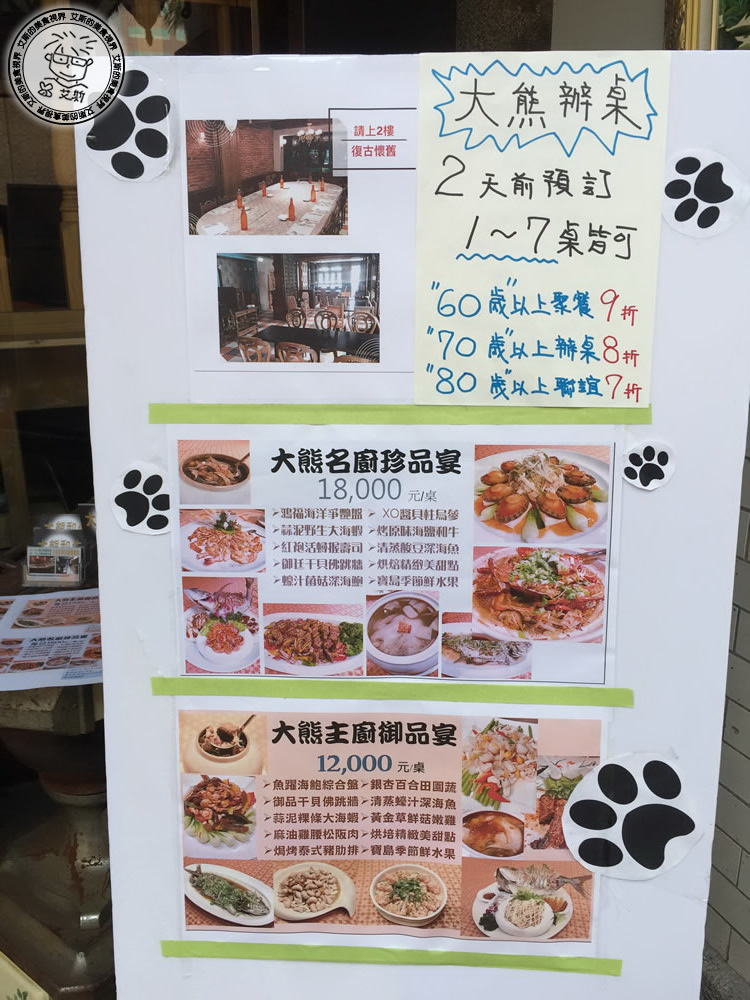 艾斯的美食視界 艾斯的美食視界 艾斯的美食視界
艾斯
請上2樓
復古懷舊
大熊辦桌
2天前預訂
1～7桌皆可
"60歲"以上聚餐9折
"70歲"以上辦桌8折
"80歲"以上聯誼7折
大熊名廚珍品宴
18,000 元/桌
➢鴻福海洋爭艷盤 ➢XO醬貝柱烏參
➢蒜泥野生大海蝦 ➢烤原味海鹽和牛
➢紅袍活鱘握壽司 ➢清蒸酸豆深海魚
➢御廷干貝佛跳牆 ➢烘焙精緻美甜點
➢蠔汁菌菇深海鮑 ➢寶島季節鮮水果
大熊主廚御品宴
12,000 元/桌
➢魚躍海鮑綜合盤 ➢銀杏百合田園蔬
➢御品干貝佛跳牆 ➢清蒸蠔汁深海魚
➢蒜泥粿條大海蝦 ➢黃金草鮮菇嫩雞
➢麻油雞腰松阪肉 ➢烘培精緻美甜點
➢焗烤泰式豬肋排 ➢寶島季節鮮水果